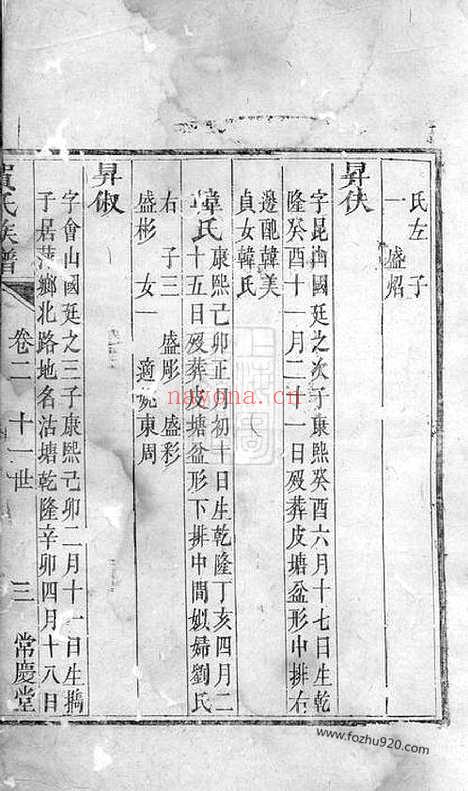 氏左 子
一 盛炤
昇伕
字昆 國廷之次子康熙癸酉六月十七日生乾
隆癸酉十一月二十一日殁葬皮塘盆形中排右
邊配韓美
貞女韓氏
韋氏康熙己卯正月初十日生乾隆丁亥四月二
十五日殁葬皮塘盆形下排中間姒婦劉氏
右 子三 盛彫 盛彩
盛彬 女一 適 東周
昇俶
字會山國廷之三子康熙己卯二月十一日生携
子居萍鄉北路地名沽塘乾隆辛卯四月十八日
賀氏族譜 卷二 十一世 三 常慶堂
nayona.cn
www.fozhu920.com